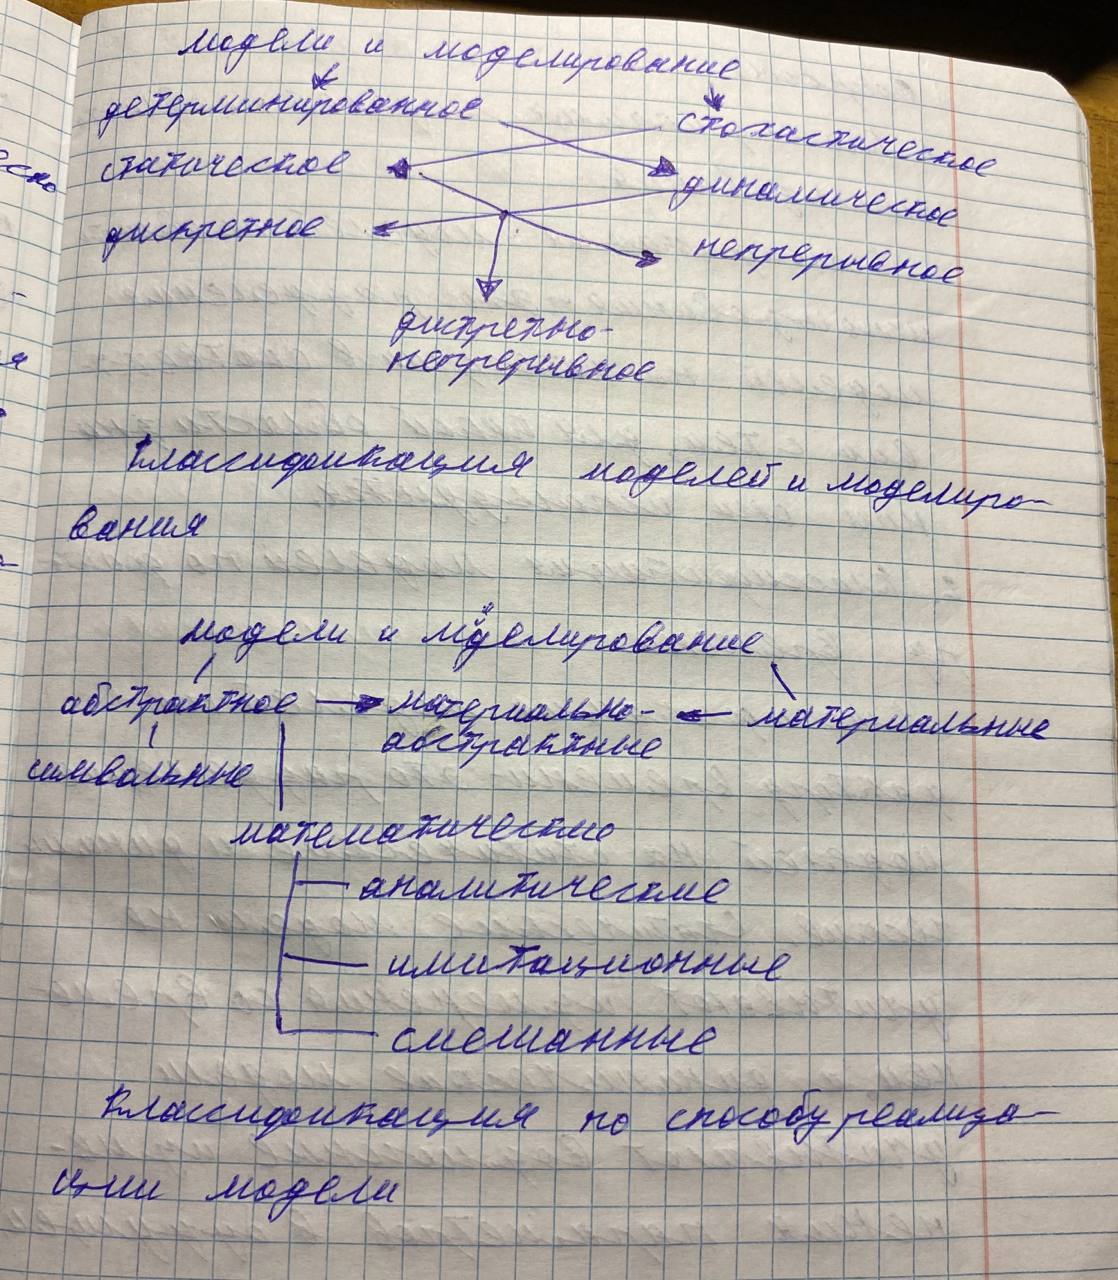 модели и моделирование
детерминированное
стохастическое
статическое
динамическое
дискретное
непрерывное
дискретно-
непрерывное
Классификация моделей и моделиро-
вания
модели и моделирование
абстрактное материально- материальные
абстрактные
символьные
математические
аналитические
имитационные
смешанные
Классификация по способу реализа-
ции модели